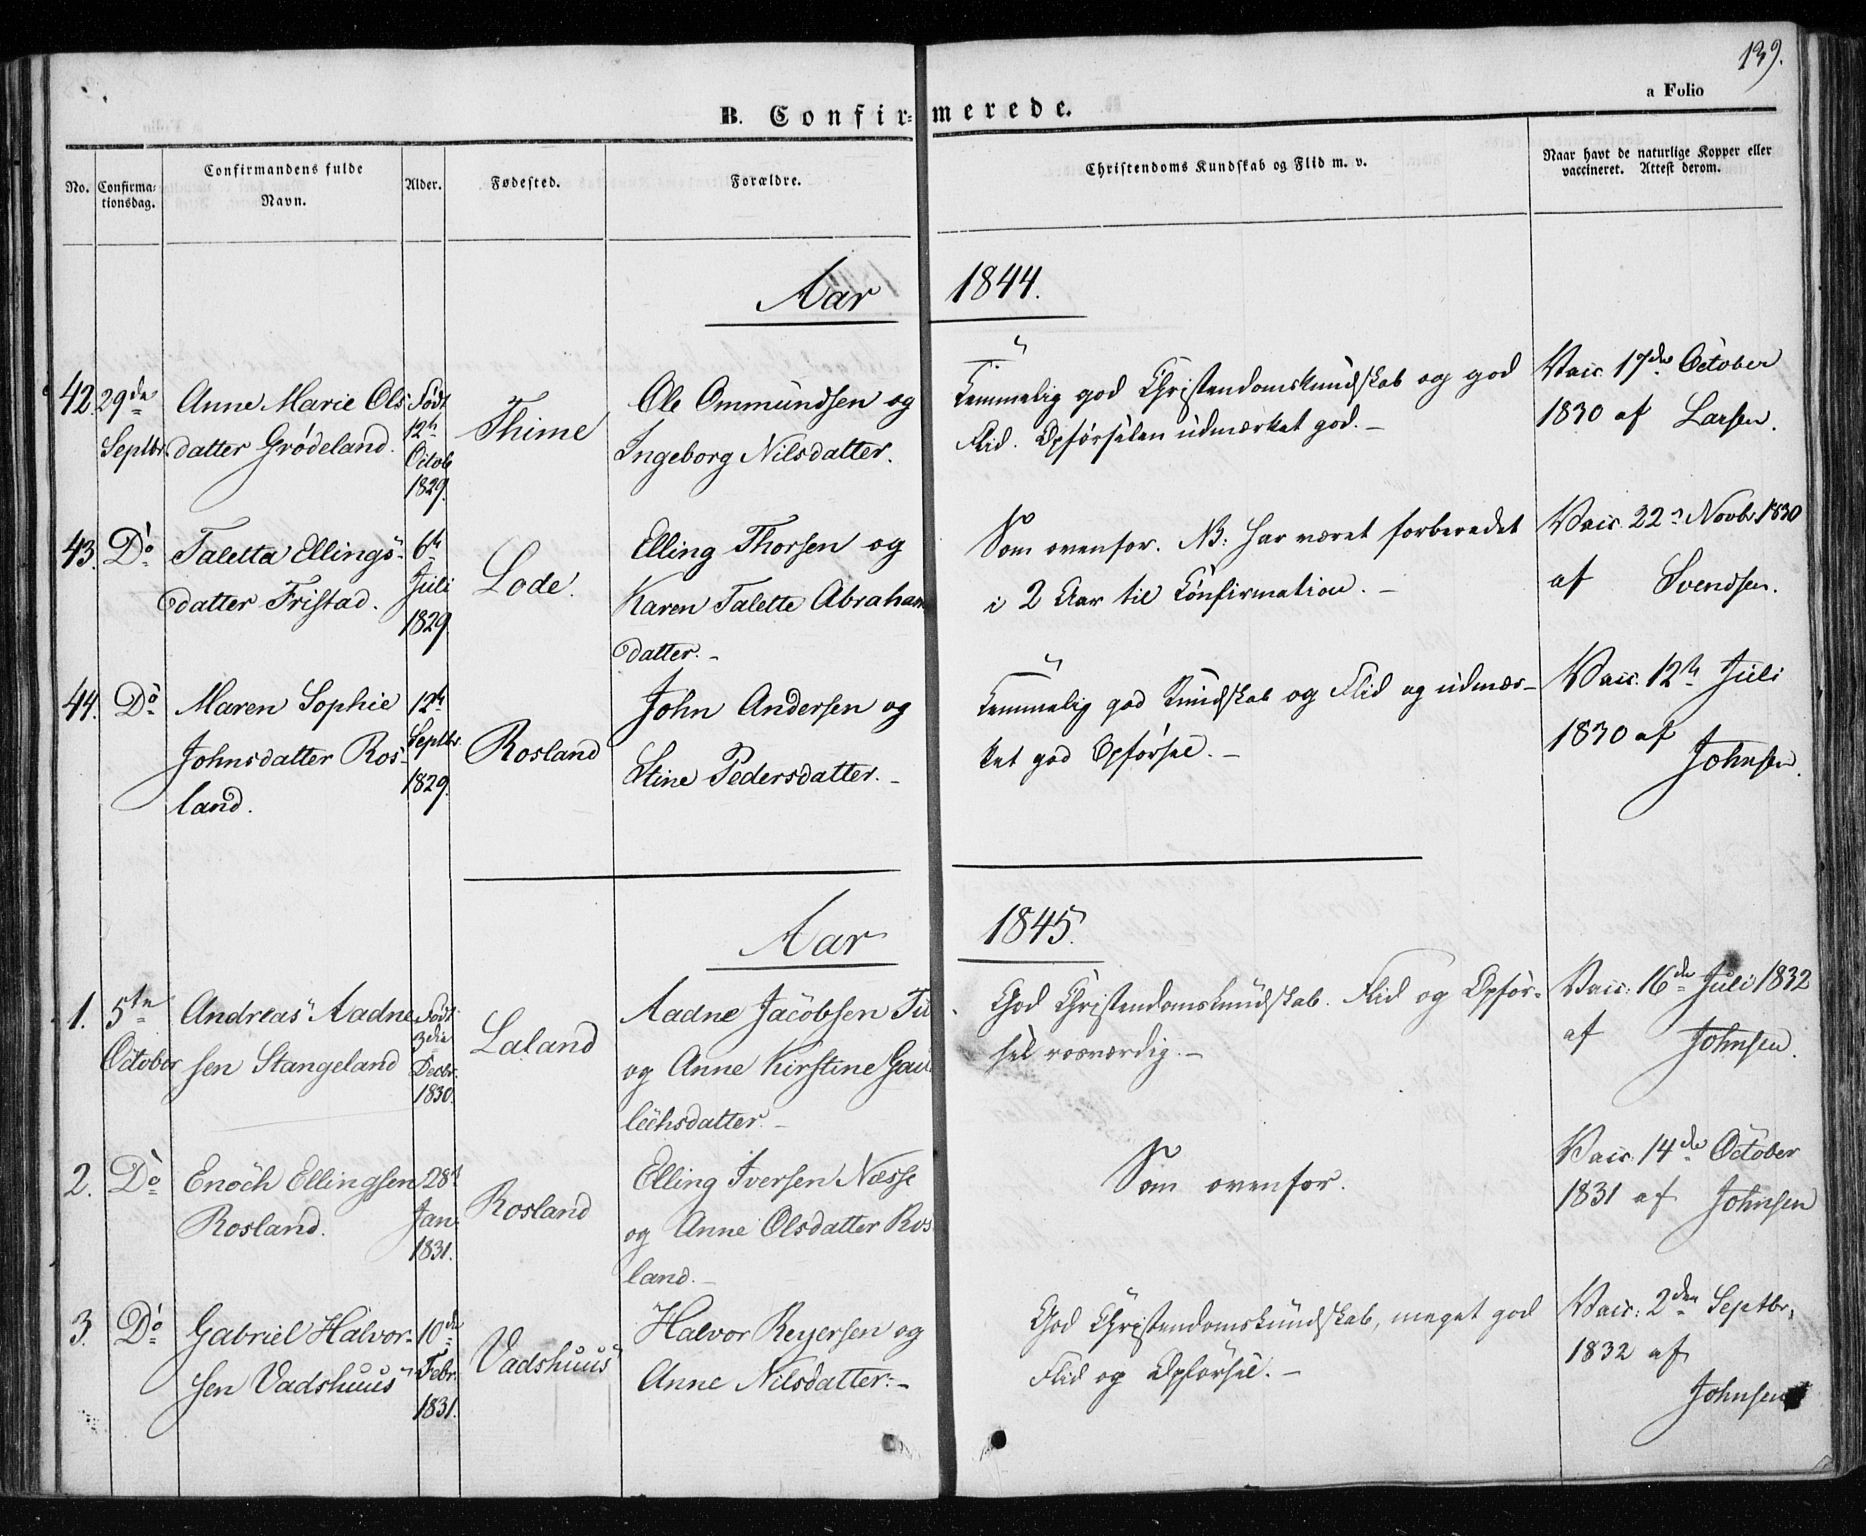 139.
a Folio
B. Confir- merede.
No. Confirma-tionsdag. Confirmandens fulde Navn. Alder. Fødested. Forældre. Christendoms Kundskab og Flid m. v. Naar havt de naturlige Kopper eller vaccineret. Attest derom.
Aar 1844.
42 29de Septbr. Anne Marie Ols-
datter Grødeland.
Født 12te Octob 1829.
Thime
Ole Ommundsen og
Ingeborg Nilsdatter.
Temmelig god Christendomskundskab og god
Flid. Opførselen udmærket god. –
Vacc. 17de October
1830 af Larsen.
43. Do Taletta Ellings-
datter Fristad.
6te Juli 1829.
Lode.
Elling Thorsen og
Karen Talette Abraham
datter. –
Som ovenfor. NB: Har været forberedet
i 2 Aar til Confirmation. –
Vacc. 22 Novbr 1830
af Svendsen.
44. Do Maren Sophie
Johnsdatter Ros-
land.
12te Septbr. 1829.
Rosland
John Andersen og
Stine Pedersdatter. –
Temmelig god Kundskab og Flid og udmær-
ket god Opførsel. –
Vacc. 12te Juli
1830 af
Johnsen.
Aar 1845.
1. 5te October Andreas Aadne
sen Stangeland
Født 3die Decbr. 1830.
Laland
Aadne Jacobsen
og Anne Kirstine
lichsdatter. –
God Christendomskundskab. Flid og Opfør-
sel rosværdig. –
Vacc. 16de Juli 1832
af Johnsen.
2. Do Enoch Ellingsen
Rosland.
28 Jan. 1831.
Rosland
Elling Iversen Næsse
og Anne Olsdatter Ros
land. –
Som ovenfor.
Vacc. 14de October
1831 af Johnsen
3. Do Gabriel Halvor-
sen Vadshuus
10de Febr. 1831.
Vadshuus
Halvor Reyersen og
Anne Nilsdatter. –
God Christendomskundskab, meget god
Flid og Opførsel. –
Vacc. 2den Septbr.
1832 af
Johnsen